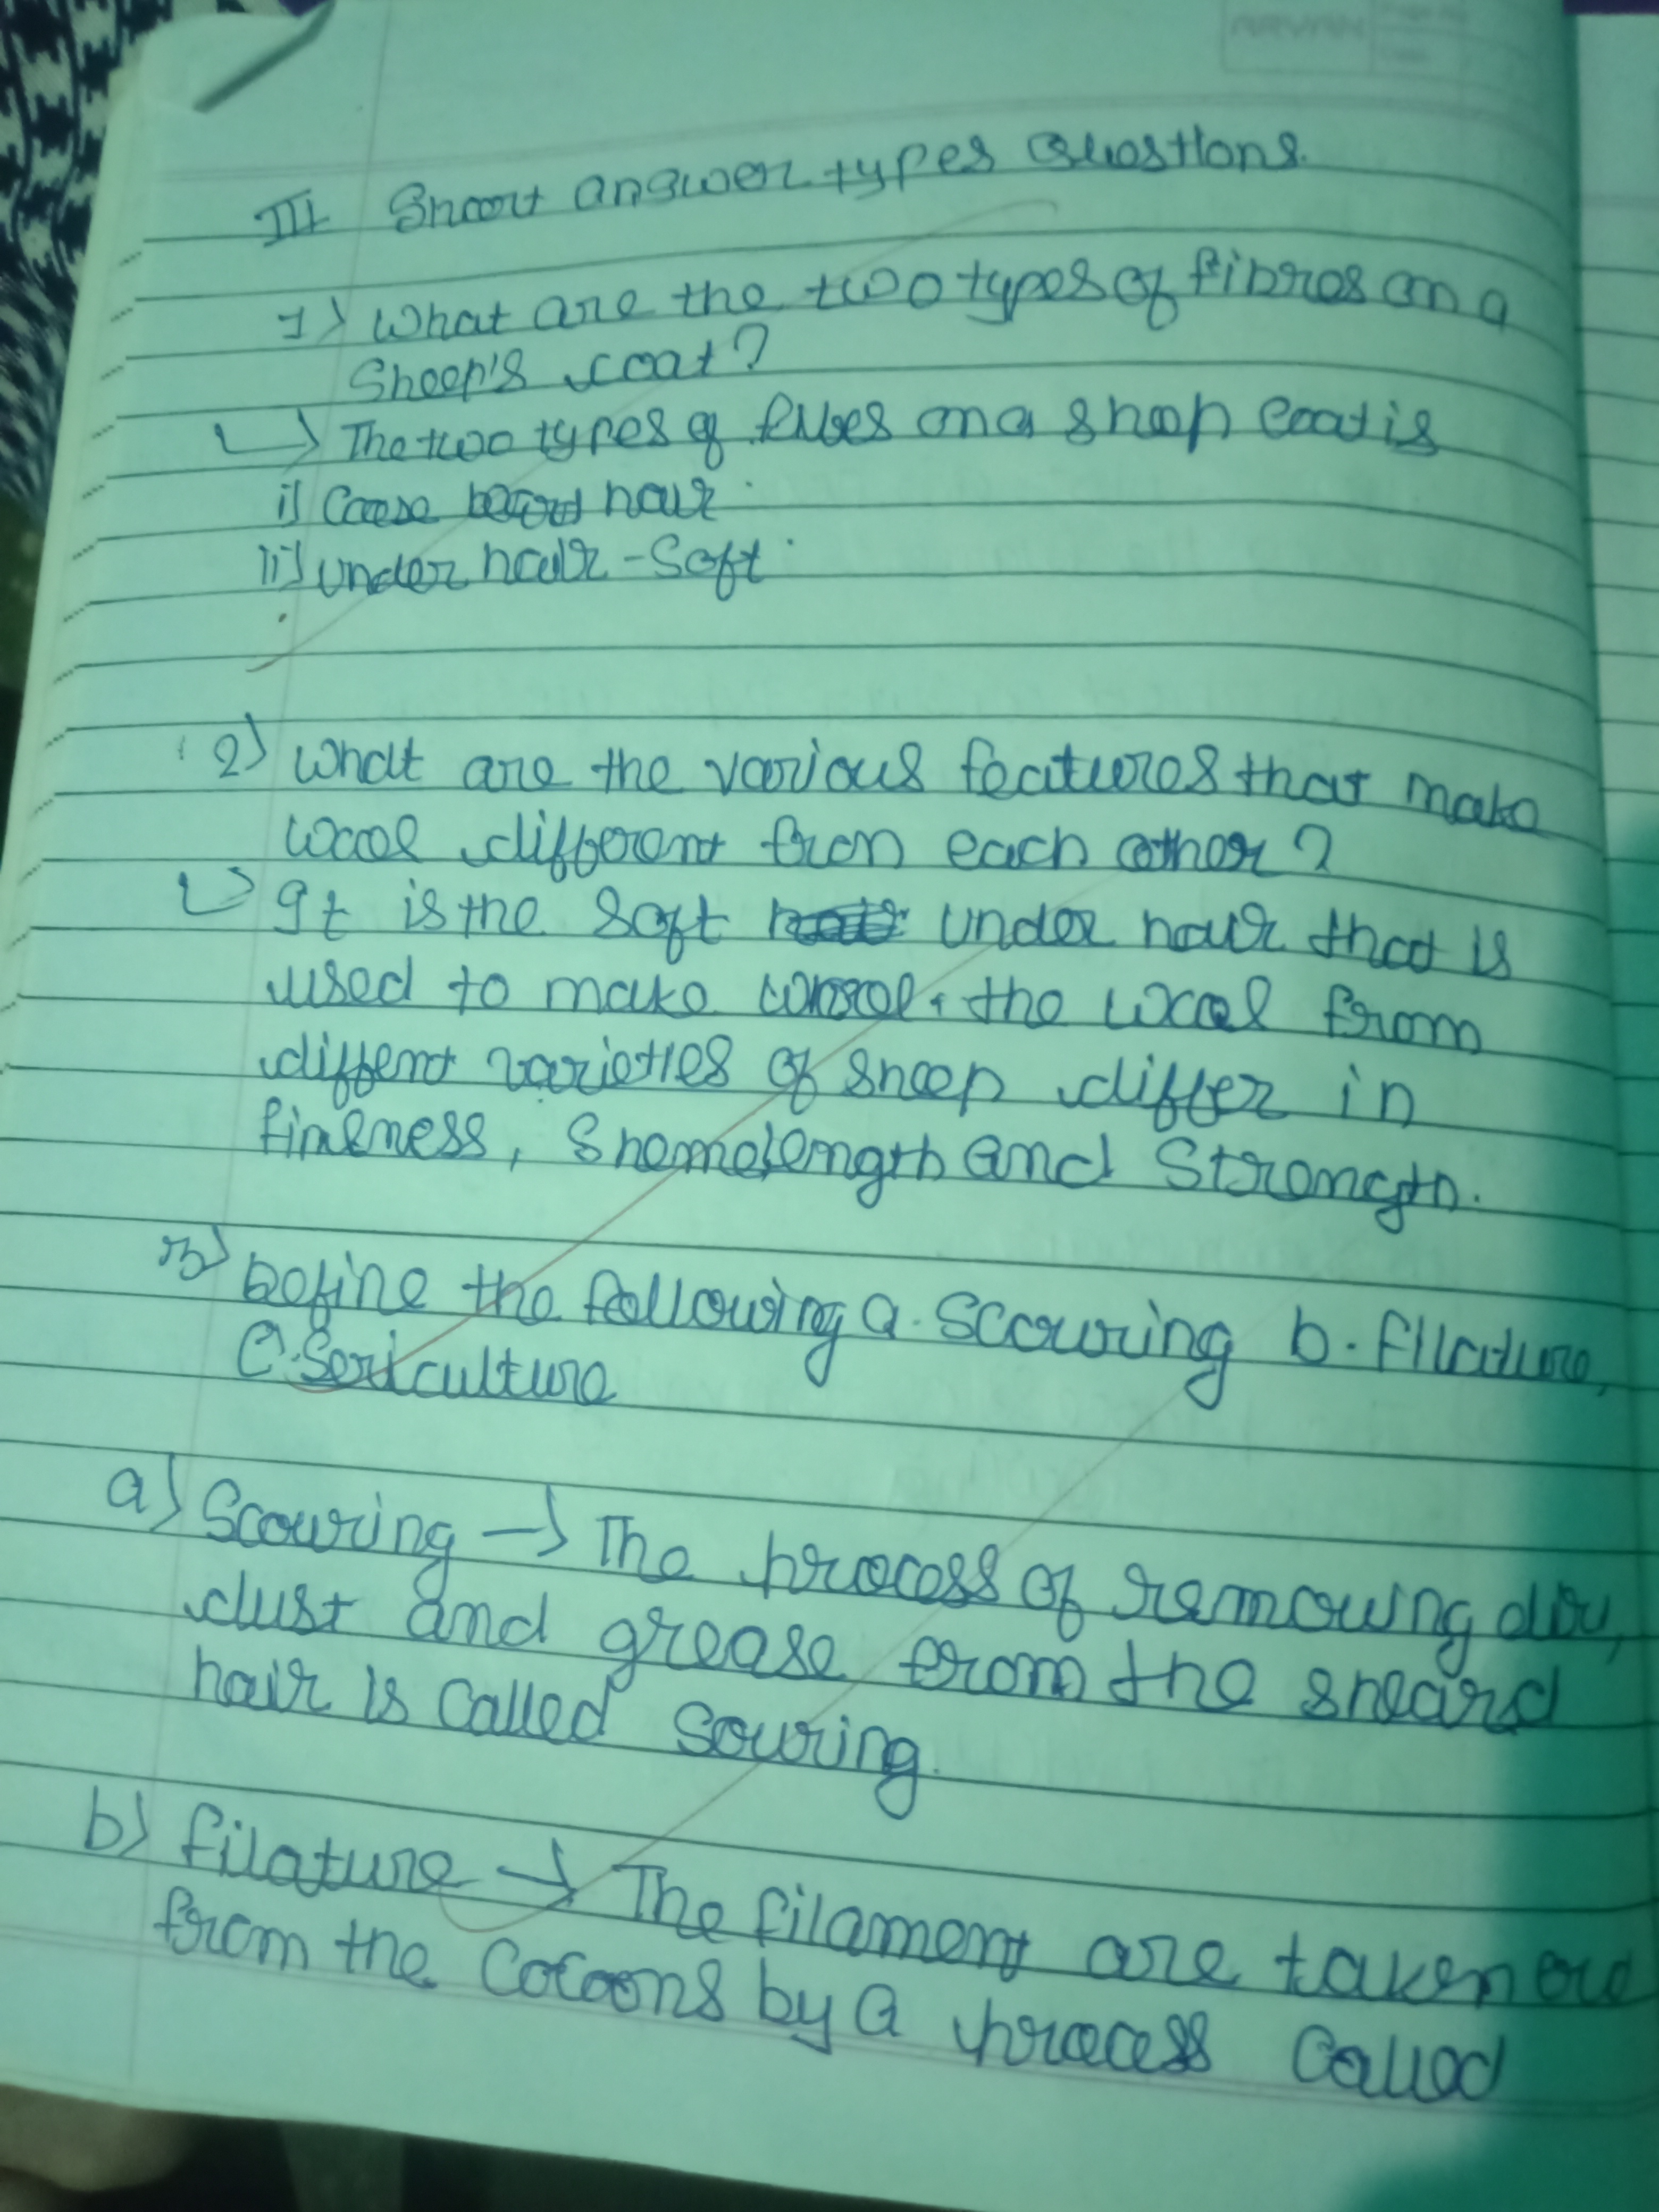 III Short answer types Questions.
1) What are the two types of fibres on a
Sheep's coat?
→ The two types of fibes on a sheep coat is
i) Coese beard hair.
ii) under hair - Soft.
2) What are the various features that make
wool different from each other?
→ It is the soft under hair that is
used to make wool. the wool from
diffent varieties of sheep differ in
fineness, length and Strength.
3) Define the following a. Scouring b. filature,
C. Sericulture
a) Scouring → The process of removing
dust and grease from the sheard
hair is called Souring.
b) filature → The filament are taken
from the Cocoons by a process Called